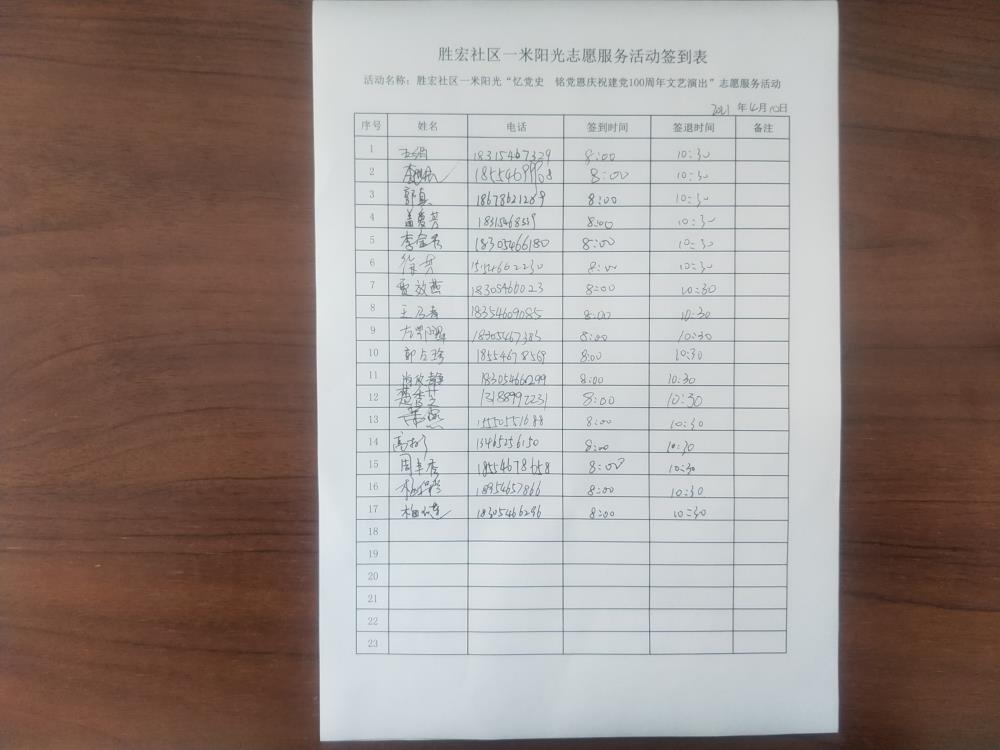 胜宏社区一米阳光志愿服务活动签到表
活动名称：胜宏社区一米阳光“忆党史 铭党恩庆祝建党100周年文艺演出”志愿服务活动
2021 年 4月10日
序号 姓名 电话 签到时间 签退时间 备注
1 王娟 18315467329 8:00 10:30
2 8:00 10:30
3 郭真 18678621269 8:00 10:30
4 盖爱芳 18315468519 8:00 10:30
5 李金秀 18305466180 8:00 10:30
6 8:00 10:30
7 贾效燕 18305466023 8:00 10:30
8 王乃春 18354609085 8:00 10:30
9 18305467385 8:00 10:30
10 郭占珍 18554678569 8:00 10:30
11 18305466299 8:00 10:30
12 13188992231 8:00 10:30
13 15550551688 8:00 10:30
14 13465256150 8:00 10:30
15 周丰秀 18554678658 8:00 10:30
16 18954657866 8:00 10:30
17 18305466296 8:00 10:30
18
19
20
21
22
23